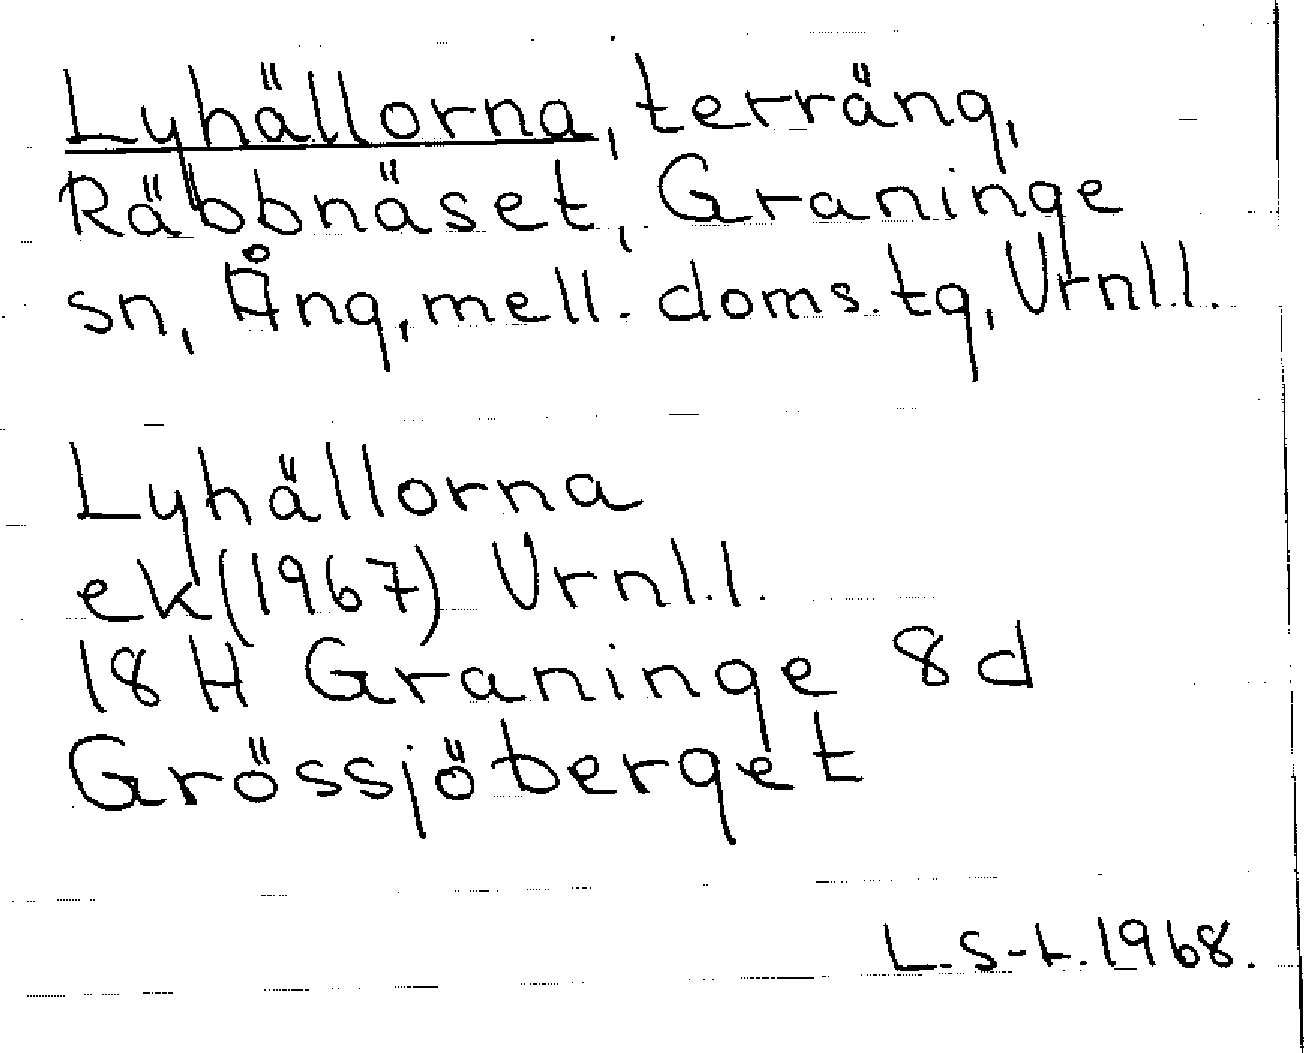 Lyhällorna, terräng,
Räbbnäset, Graninge
sn, Ång, mell. doms. tg, Vrnl.l.
Lyhällorna
ek (1967) Vrnl.l.
18 H Graninge 8d
Grössjöberget
L. S-L. 1968.